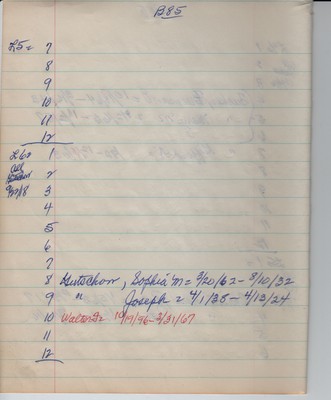 B85
L5= 7
8
9
10
11
12
L6= 1
2
3
4
5
6
7
8 Gutschow, Sophia M = 3/20/62 - 8/10/32
9 " Joseph = 4/1/38 - 4/13/24
10 Walter Jr 10/19/96 - 3/31/67
11
12